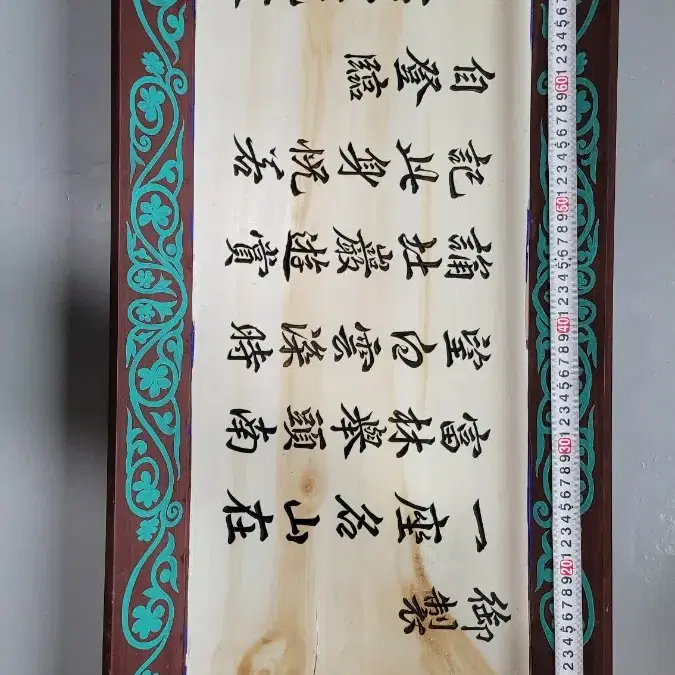 御製
一座名山在
富林舉頭南
望白雲深時
誦壯巖遊賞
記此身恍若
自登臨
2 3 4 5 6 7 8 9 20 1 2 3 4 5 6 7 8 9 30 1 2 3 4 5 6 7 8 9 40 1 2 3 4 5 6 7 8 9 50 1 2 3 4 5 6 7 8 9 60 1 2 3 4 5 6 7